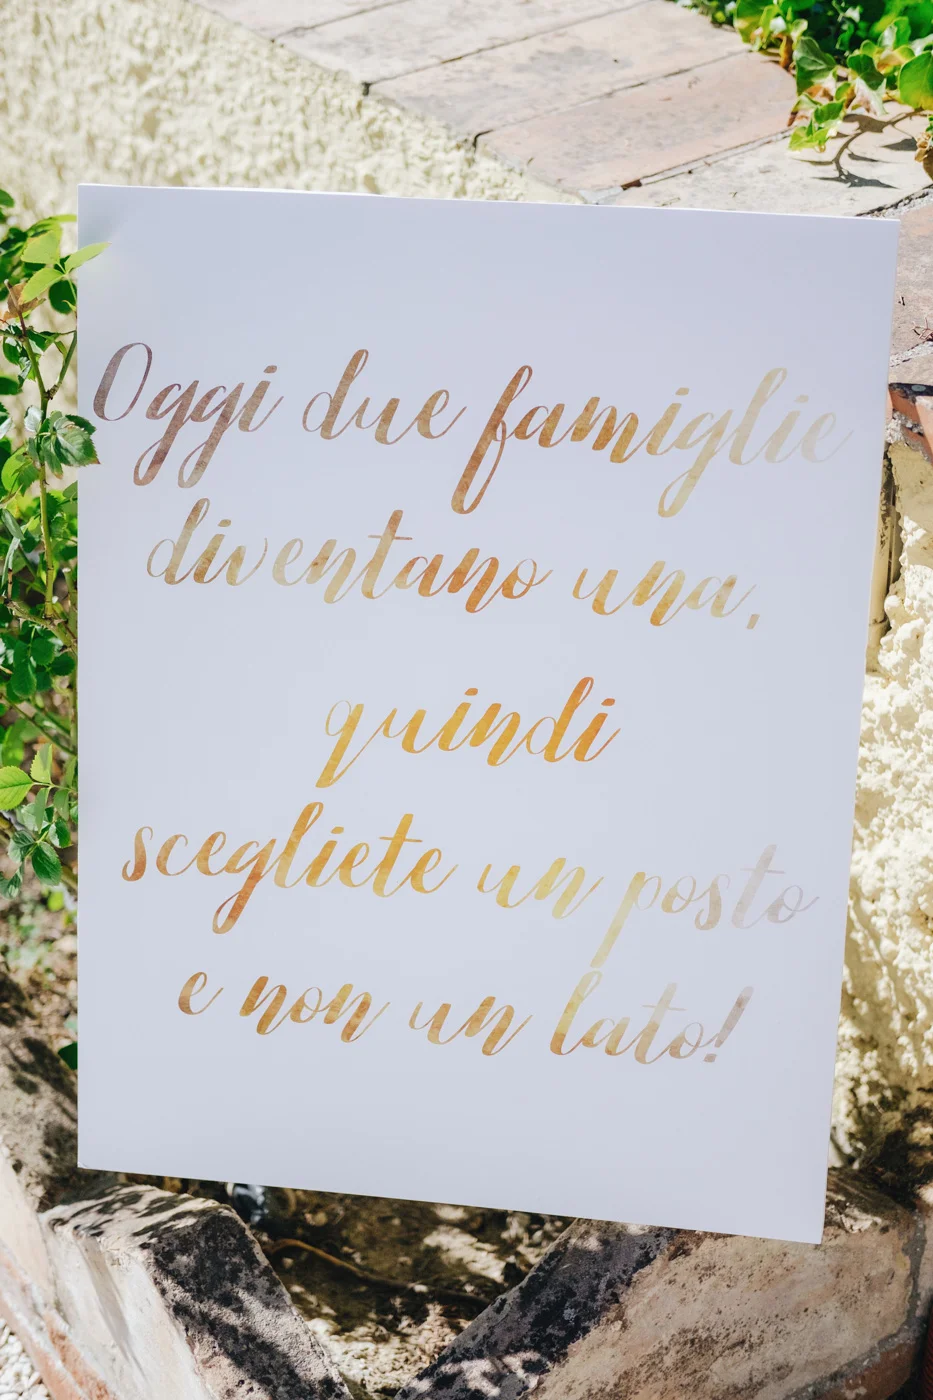 Oggi due famiglie
diventano una,
quindi
scegliete un posto
e non un lato!